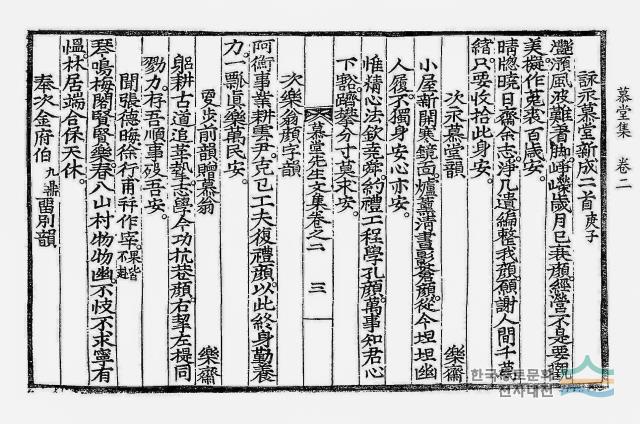 慕堂集 卷二
詠永慕堂新成二首 庚子
灔澦風波難著脚崢嶸歲月已衰顔經營不是要觀
美擬作菟裘百歲安
晴牕曉日齋余志淨几遺編整我顔願謝人間千萬
綰只要收拾此身安
次永慕堂韻 樂齋
小屋新開寒鏡面爐薰淸晝影蒼顔從今坦坦幽
人履不獨身安心亦安
惟精心法欽堯舜約禮工程學孔顔萬事知君心
下豁躋攀分寸莫求安
慕堂先生文集卷之二 三
次樂翁顔字韻
阿衡事業耕雲尹克己工夫復禮顔以此終身勤養
力一瓢眞樂萬民安
更步前韻贈慕翁 樂齋
躬耕古道追莘摯志學今功抗巷顔右挈左提同
勠力存吾順事歿吾安
聞張德晦徐行甫幷作宰 果皆不赴
琴鳴梅閣賢賢樂春八山村物物幽不忮不求寧有
慍林居端合保天休
奉次金府伯 九鼎 留別韻
한국유교문화
전자대전